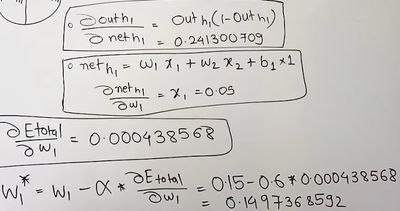 ∂outh₁/∂neth₁ = Outh₁(1-Outh₁)
= 0.241300709
neth₁ = w₁x₁ + w₂x₂ + b₁×1
∂neth₁/∂w₁ = x₁ = 0.05
∂Etotal/∂w₁ = 0.000438568
w₁* = w₁ - α * ∂Etotal/∂w₁ = 0.15-0.6*0.000438568
= 0.1497368592